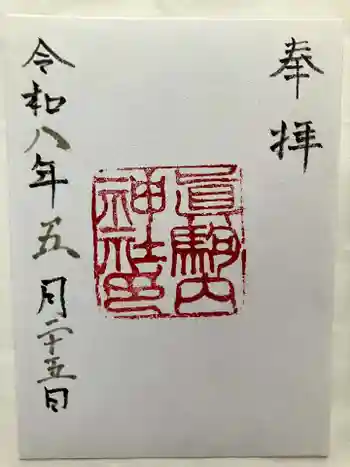 奉拝
眞駒内
神社印
令和八年五月二十五日